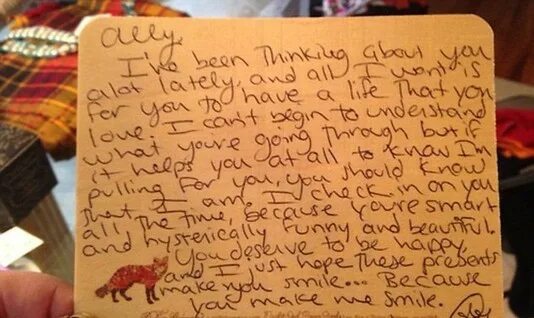 Ally,
I've been Thinking about you
alot lately, and all I want is
for you to have a life That you
love. I can't begin to understand
what you're going Through but if
it helps you at all to know I'm
pulling for you, you should know
that I am. I check in on you
all The time, because you're smart
and hysterically funny and beautiful.
You deserve to be happy,
and I just hope These presents
make you smile... Because
you make me smile.